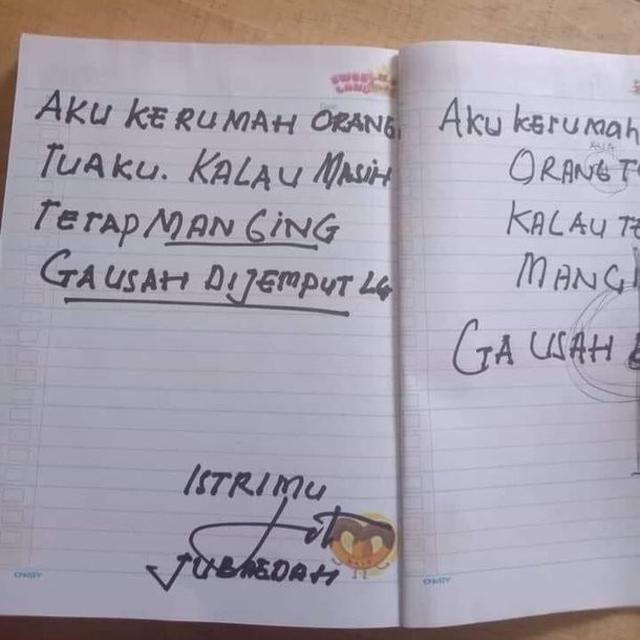 AKU KERUMAH ORANG
TUAKU. KALAU MASIH
TETAP MANGING
GAUSAH DIJEMPUT LG
ISTRIMU
JUBAEDAH
CHRISTY
AKu kerumah
ORANG T
KALAU TE
MANGI
GA USAH